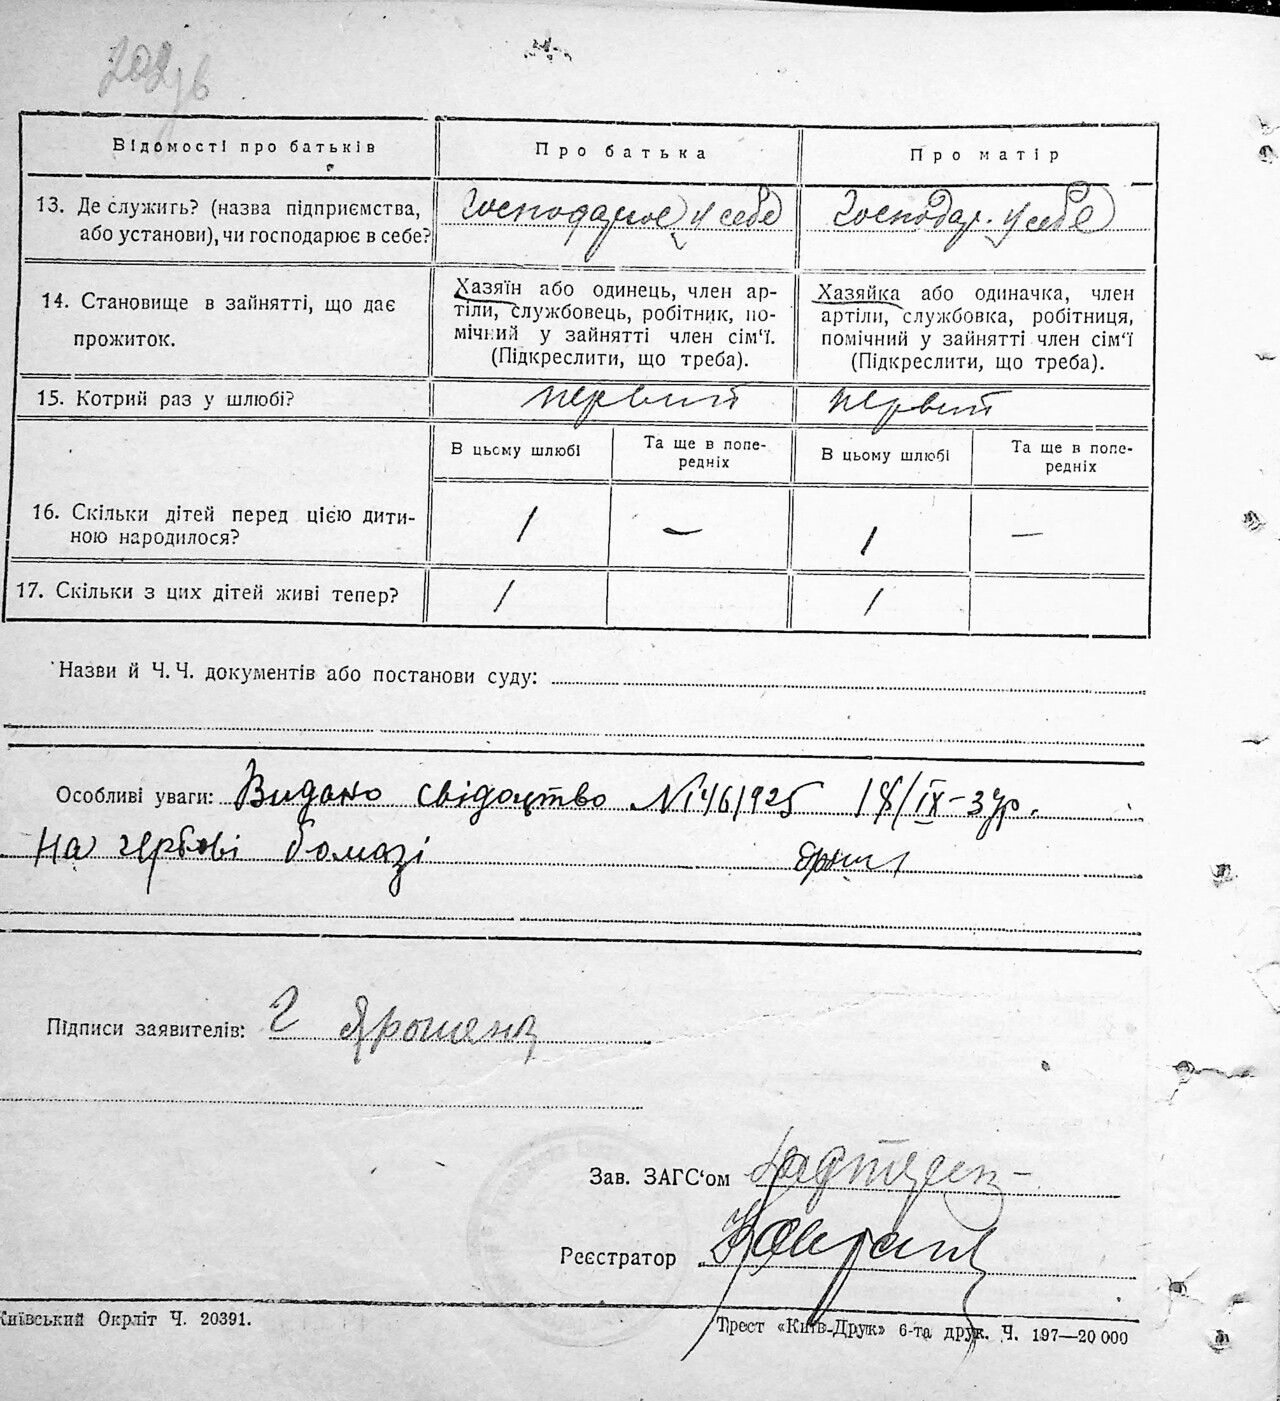 202
Відомості про батьків
Про батька
Про матір
13. Де служить? (назва підприємства,
або установи), чи господарює в себе?
Господарює у себе
Господар. у себе
14. Становище в зайнятті, що дає
прожиток.
Хазяїн або одинець, член ар-
тіли, службовець, робітник, по-
мічний у зайнятті член сім'ї.
(Підкреслити, що треба).
Хазяйка або одиначка, член
артіли, службовка, робітниця,
помічний у зайнятті член сім'ї
(Підкреслити, що треба).
15. Котрий раз у шлюбі?
первий
первий
В цьому шлюбі
Та ще в попе-
редніх
В цьому шлюбі
Та ще в попе-
редніх
16. Скільки дітей перед цією дити-
ною народилося?
1
—
1
—
17. Скільки з цих дітей живі тепер?
1
1
Назви й Ч. Ч. документів або постанови суду:
Особливі уваги: Видано свідоцтво № 1461925 18/IX-3 р.
на гербові бомазі
Підписи заявителів: Г
Зав. ЗАГС'ом
Реєстратор
Київський Окрліт Ч. 20391.
Трест «Київ-Друк» 6-та друк. Ч. 197—20 000